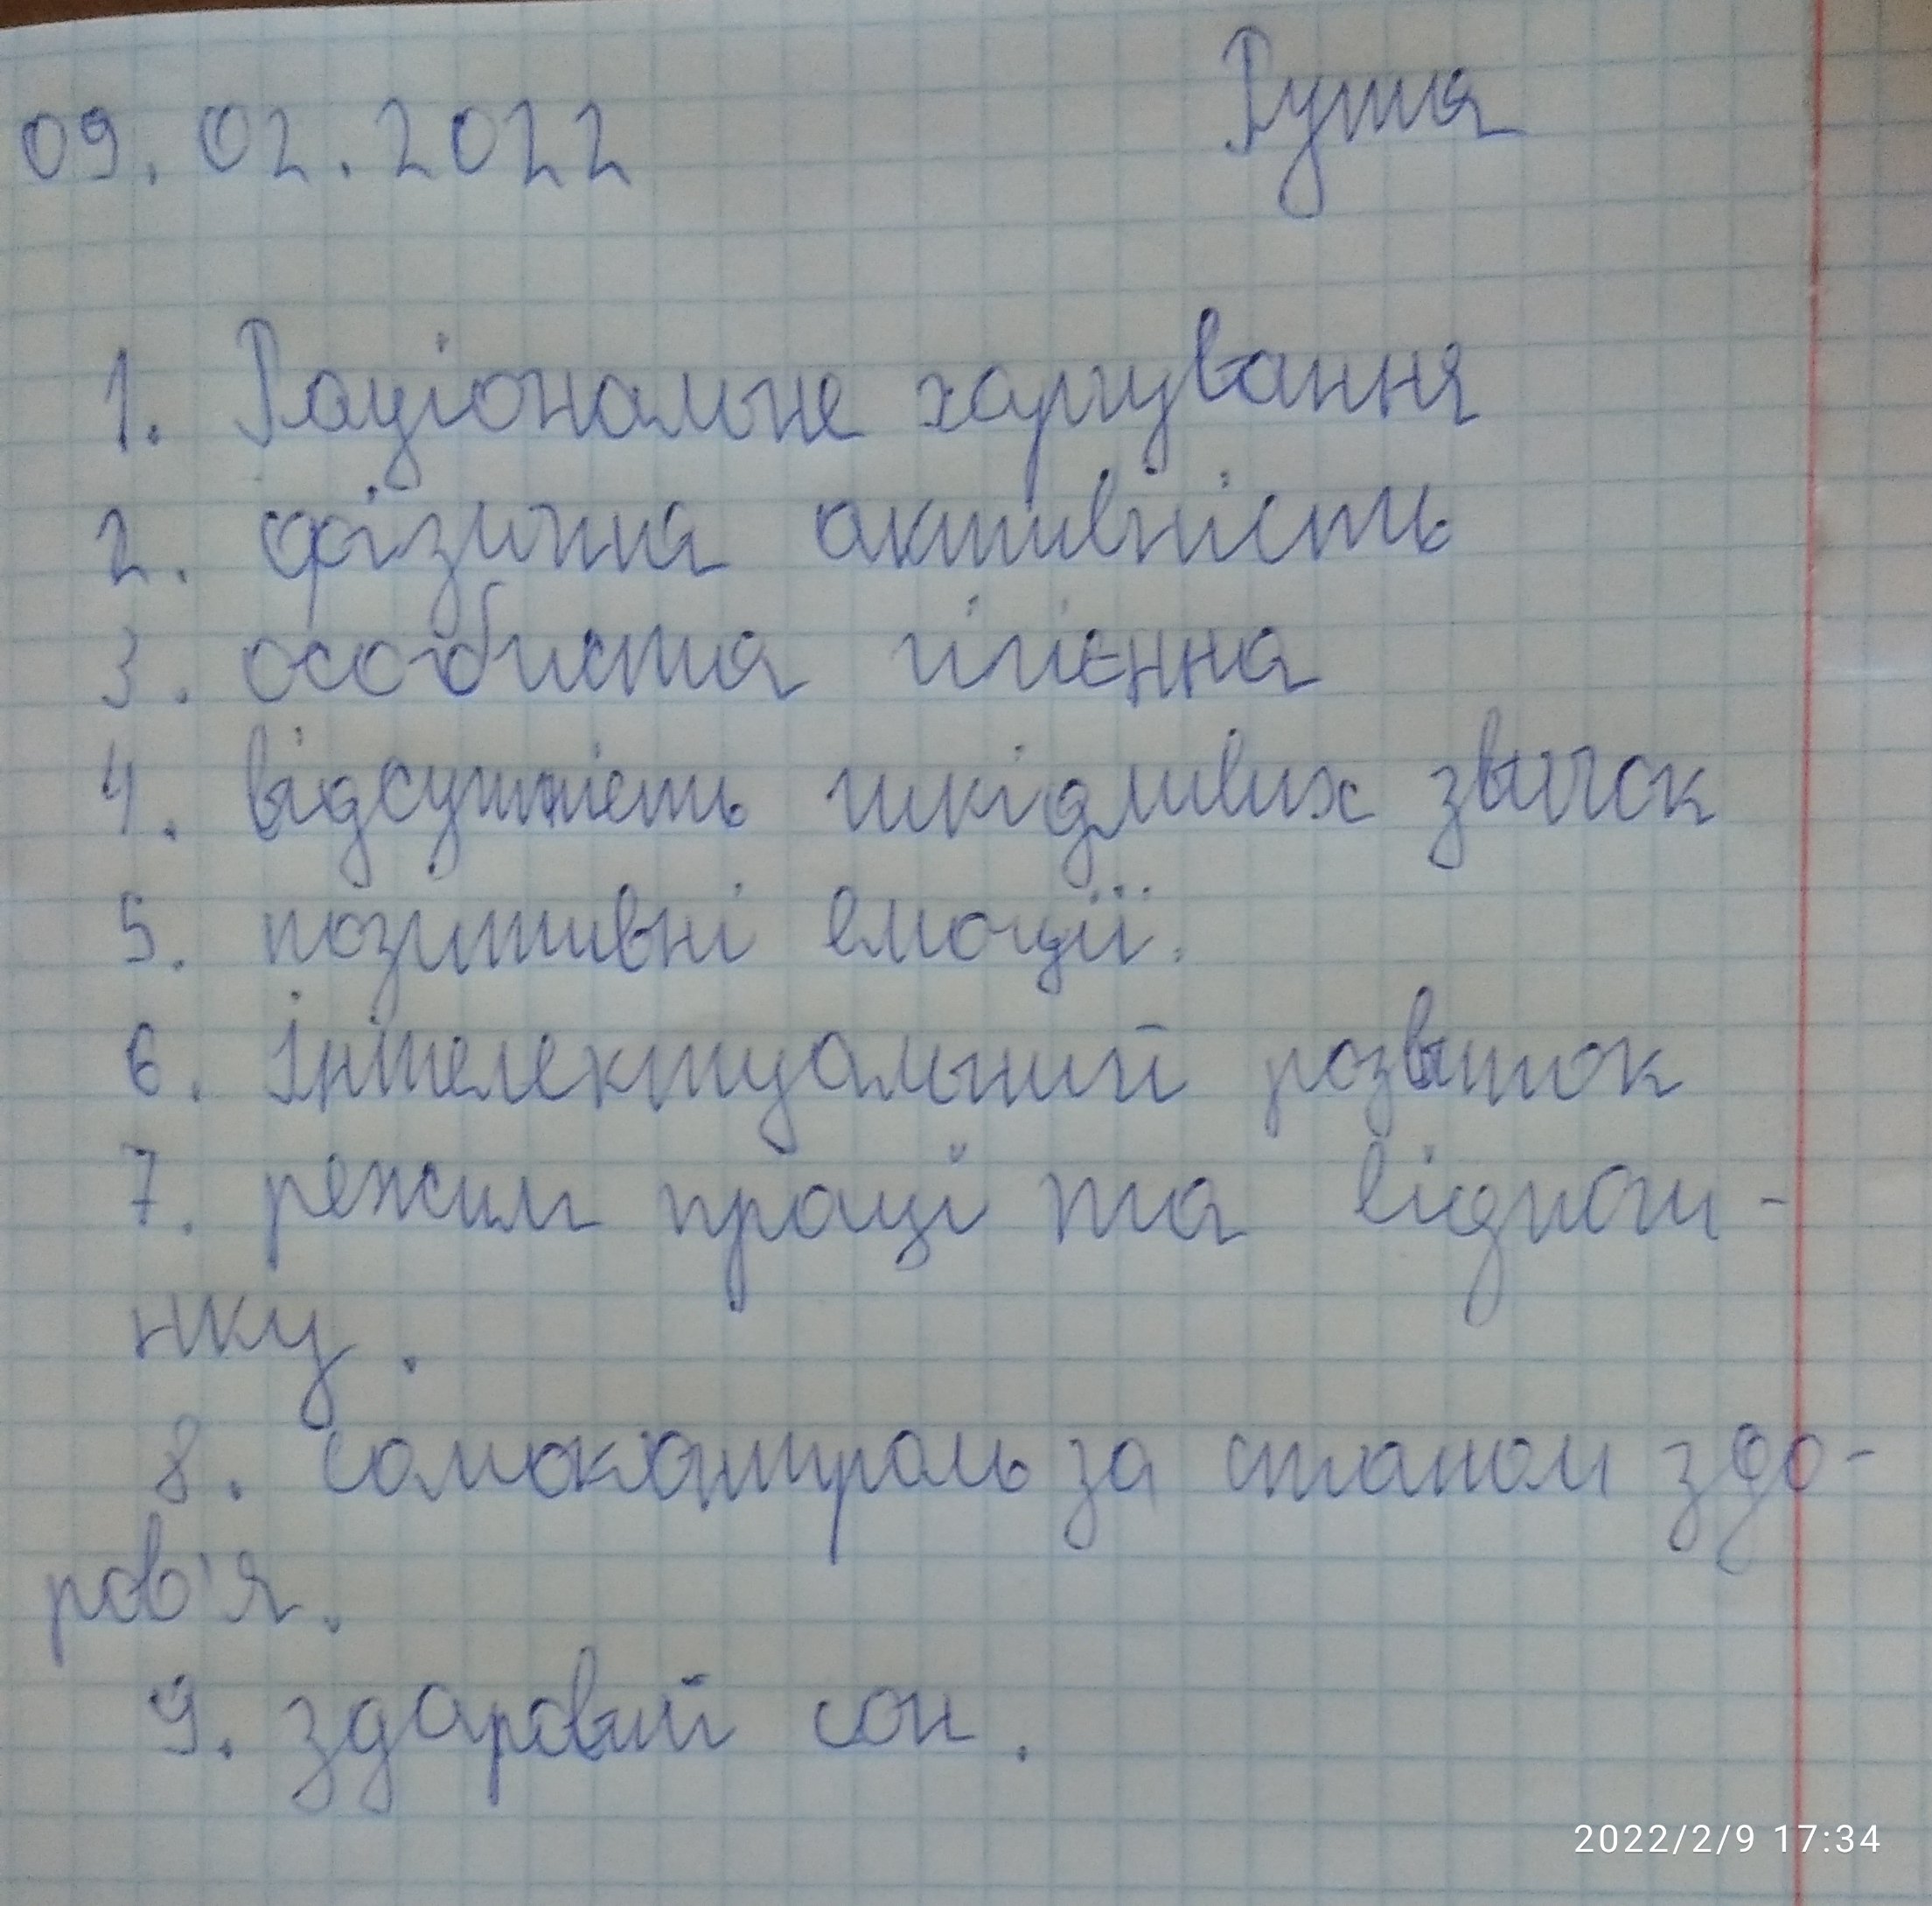 09.02.2022 Рута
1. Раціональне харчування
2. фізична активність
3. особиста гігієнна
4. відсутність шкідливих звичок
5. позитивні емоції.
6. Інтелектуальний розвиток
7. режим праці та відпочи-
нку.
8. самоконтроль за станом здо-
ров'я.
9. здоровий сон.
2022/2/9 17:34